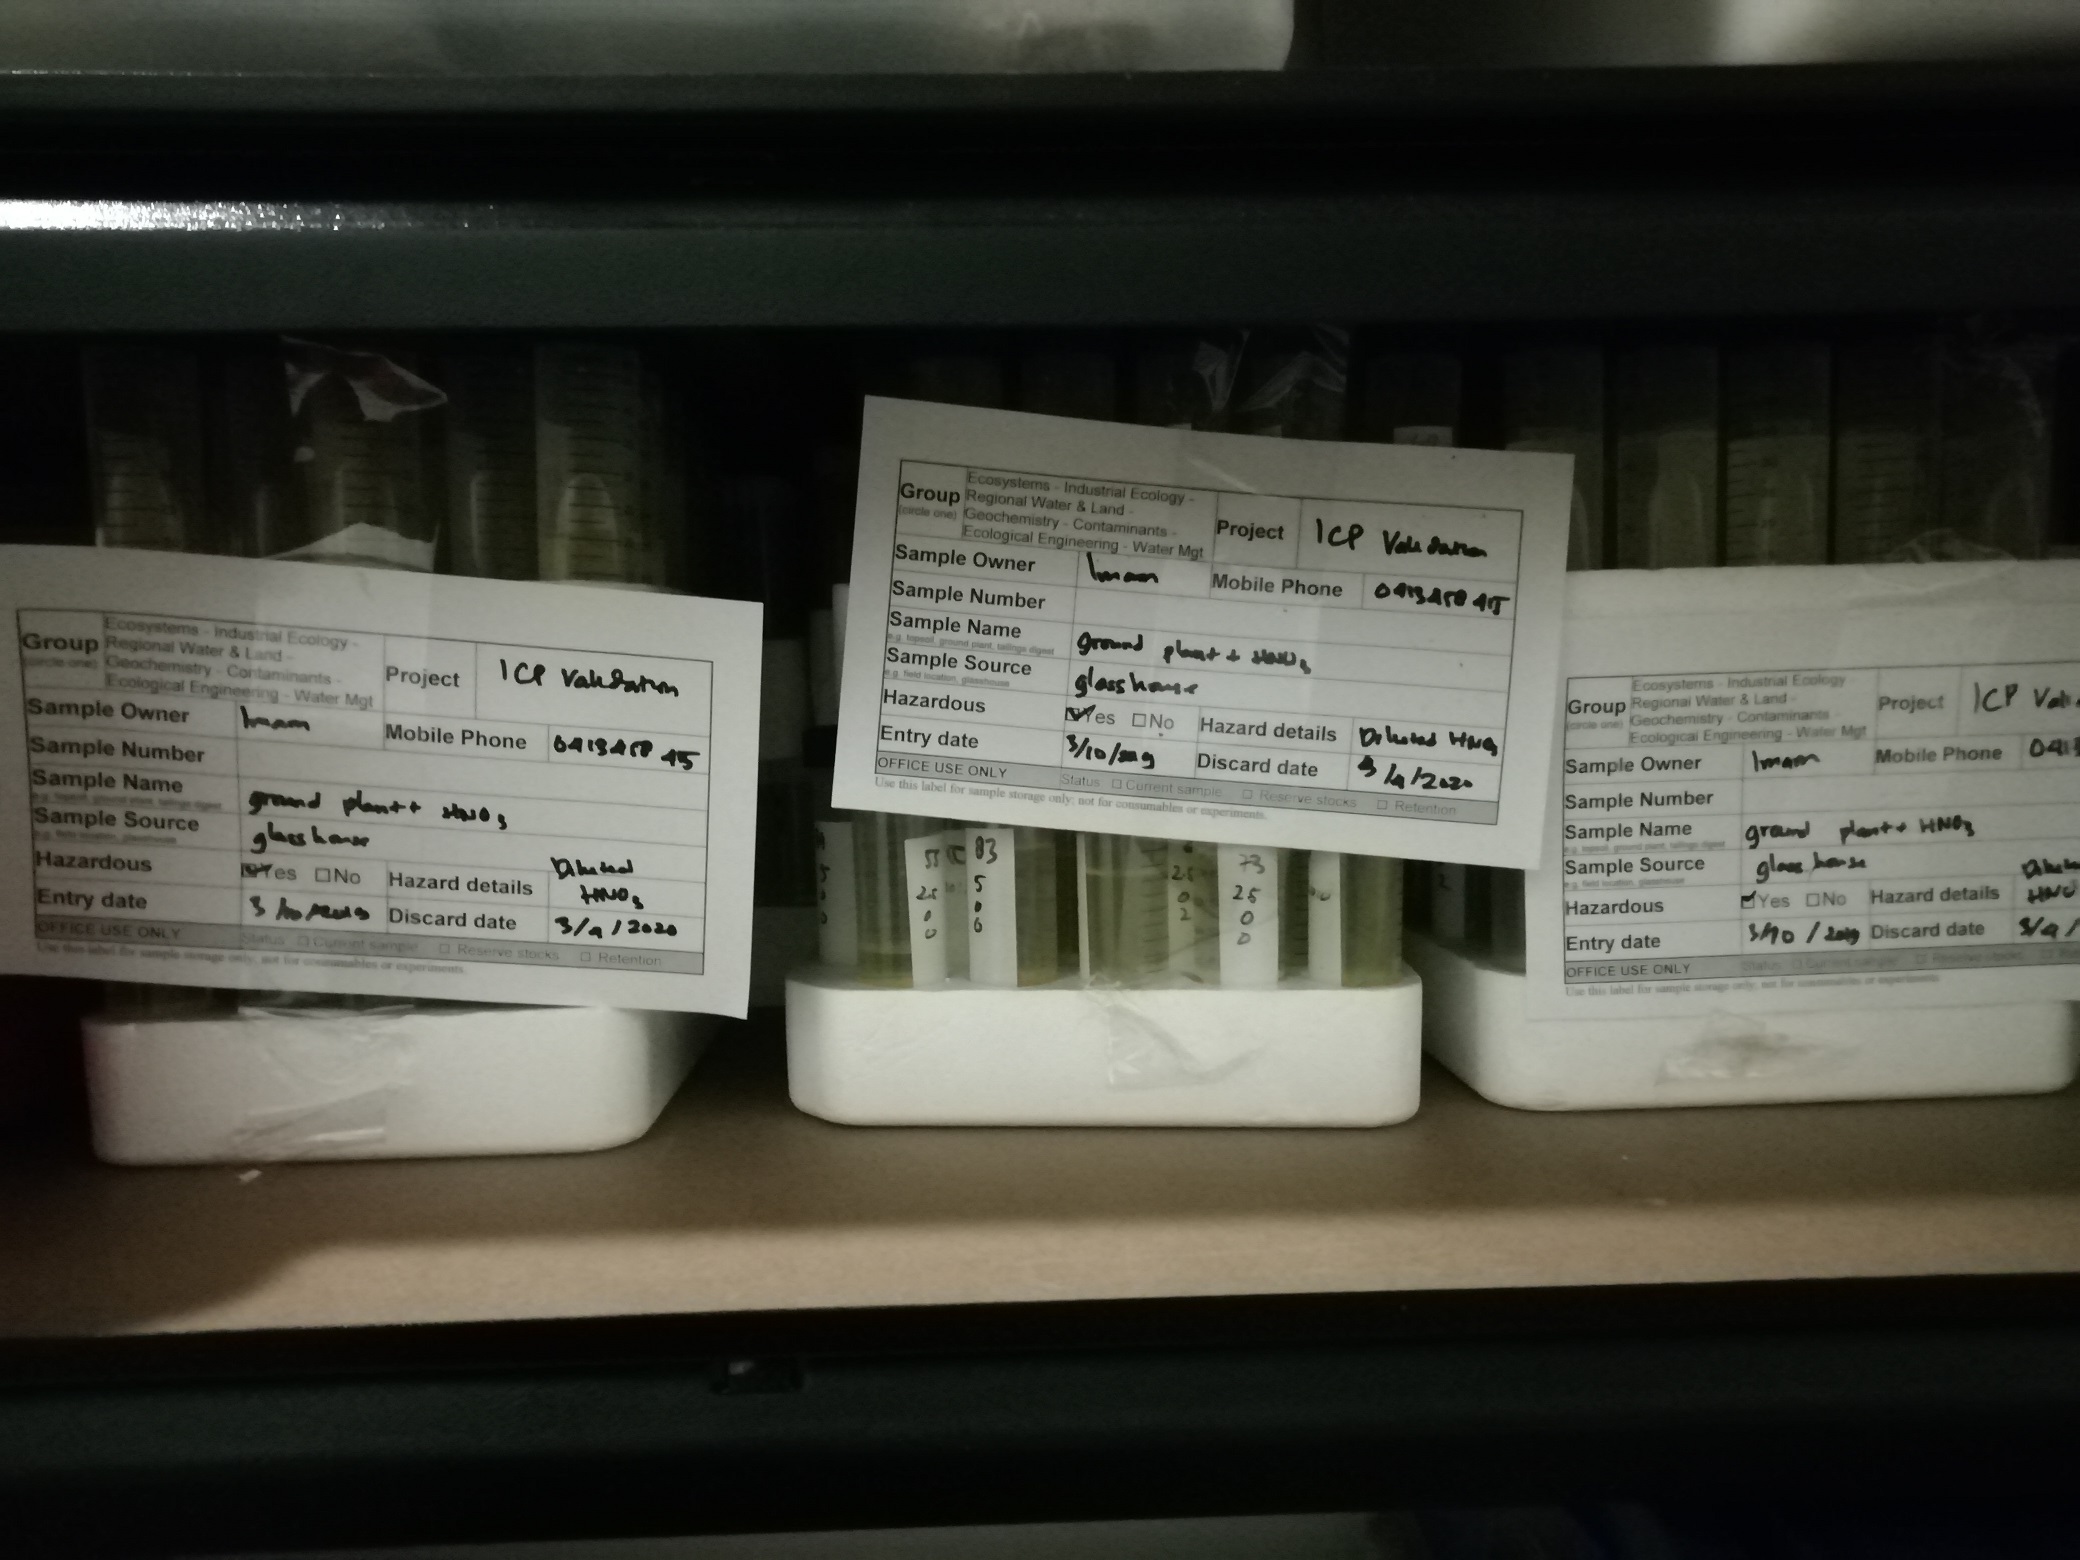 Group
(circle one)
Ecosystems - Industrial Ecology -
Regional Water & Land -
Geochemistry - Contaminants -
Ecological Engineering - Water Mgt
Project
ICP Validation
Sample Owner
Imam
Mobile Phone
Sample Number
Sample Name
e.g. topsoil, ground plant, tailings digest
ground plant + HNO3
Sample Source
e.g. field location, glasshouse
glasshouse
Hazardous
Yes No
Hazard details
Diluted
HNO3
Entry date
3/10/2019
Discard date
3/9/2020
OFFICE USE ONLY
Status Current sample Reserve stocks Retention
Use this label for sample storage only; not for consumables or experiments.
Group
(circle one)
Ecosystems - Industrial Ecology -
Regional Water & Land -
Geochemistry - Contaminants -
Ecological Engineering - Water Mgt
Project
ICP Validation
Sample Owner
Imam
Mobile Phone
Sample Number
Sample Name
e.g. topsoil, ground plant, tailings digest
ground plant + HNO3
Sample Source
e.g. field location, glasshouse
glasshouse
Hazardous
Yes No
Hazard details
Diluted HNO3
Entry date
3/10/2019
Discard date
3/9/2020
OFFICE USE ONLY
Status Current sample Reserve stocks Retention
Use this label for sample storage only; not for consumables or experiments.
83
5
0
6
25
0
2
73
25
0
0
Group
(circle one)
Ecosystems - Industrial Ecology -
Regional Water & Land -
Geochemistry - Contaminants -
Ecological Engineering - Water Mgt
Project
ICP Vali
Sample Owner
Imam
Mobile Phone
041
Sample Number
Sample Name
e.g. topsoil, ground plant, tailings digest
ground plant + HNO3
Sample Source
e.g. field location, glasshouse
glasshouse
Hazardous
Yes No
Hazard details
HNO
Entry date
3/10/2019
Discard date
3/9/
OFFICE USE ONLY
Status Current sample Reserve stocks
Use this label for sample storage only; not for consumables or experiments